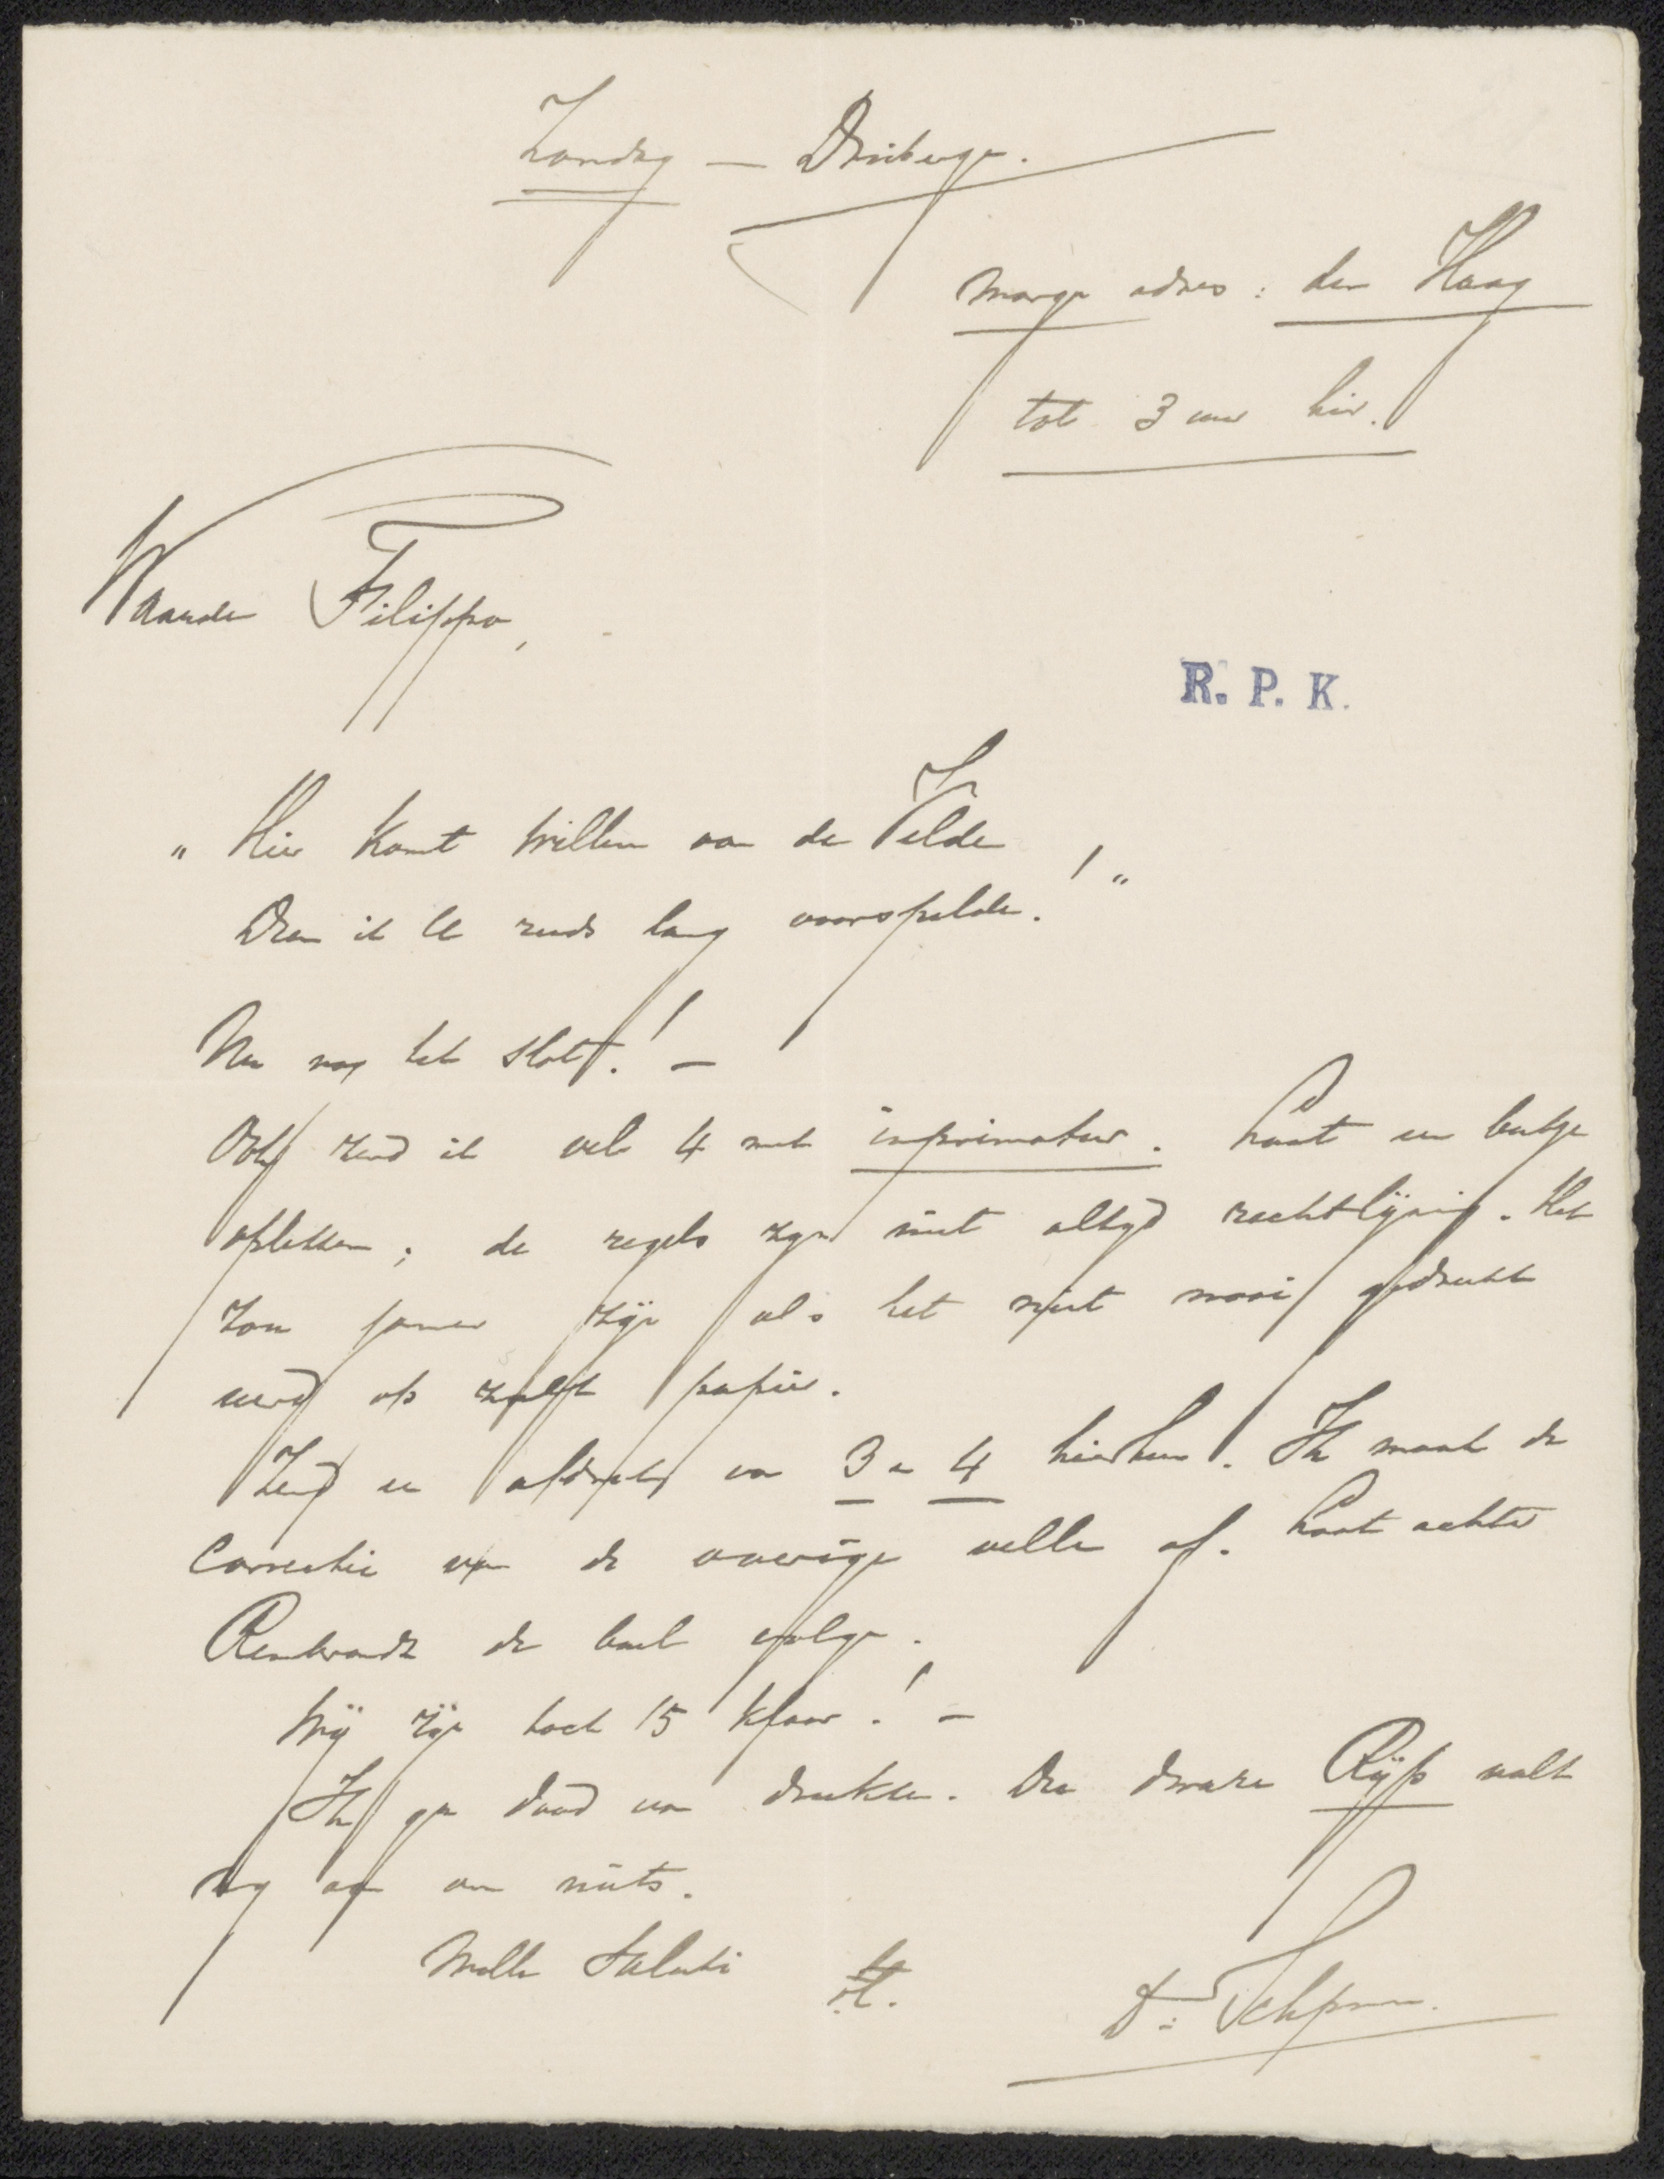 Zondag — Driebergen.
Morgen adres: den Haag
tot 3 uur hier.
Waarde Filippo,
R. P. K.
„ Hier komt Willem van de Velde
Dien ik U reeds lang voorspelde. ! „
Nu nog het slot. ! —
Ook zend ik vel 4 met imprimatur. Laat een beetje
opletten; de regels zijn niet altijd rechtlijnig. Het
zou jammer zijn als het niet mooi gedrukt
werd op zulk papier.
Zend een afdruk van 3 en 4 hierheen. Ik maak de
Correctie van de overige vellen af. Laat achter
Rembrandt de boel volgen.
Wij zijn toch 15 klaar. ! —
Ik ga dood van drukte. Die dwaze Rijp valt
mij op om niets.
Mille Saluti
tt.
Dr.